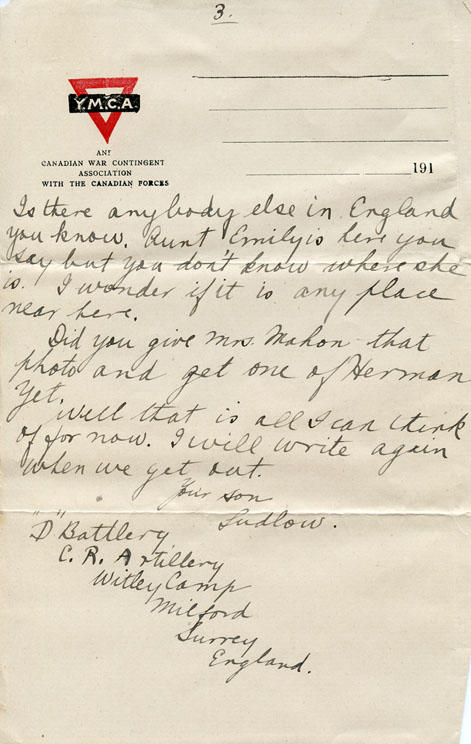 3.
Y.M.C.A.
AND
CANADIAN WAR CONTINGENT
ASSOCIATION
WITH THE CANADIAN FORCES
191
Is there anybody else in England
you know. Aunt Emily is here you
say but you don't know where she
is. I wonder if it is any place
near here.
Did you give Mrs. Mahon that
photo and get one of Herman
yet.
Well that is all I can think
of for now. I will write again
when we get out.
Your son
Ludlow.
"D" Battlery
C. R. Artillery
Witley Camp
Milford
Surrey
England.